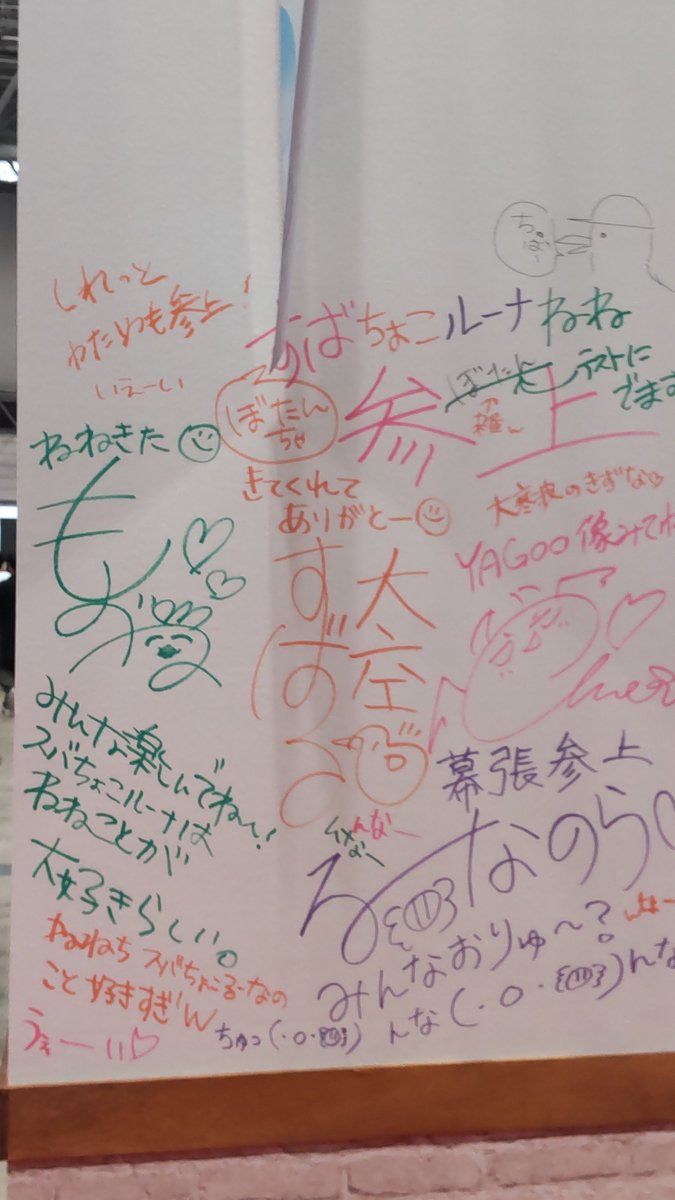 ちゅ。ばー
しれっと
わためも参上!
いえーい
すばちょこルーナねね
参上
ぼたん
↑
雑〜
テストに
でます
ねねきた
ぼたん
ちゃ
きてくれて
ありがとー
大寒波のきずな
YAGOO像みてね
もも
大空
すばる
みんな楽しんでね〜!
スバちょこルーナは
ねねことが
大好きらしい。
ねねち スバちょこるーなの
こと好きすぎw
うぇーい
幕張参上
んなー
るーなのら
みんなおりゅ〜?
んな(・o・
ちゅっ(・o・
んな